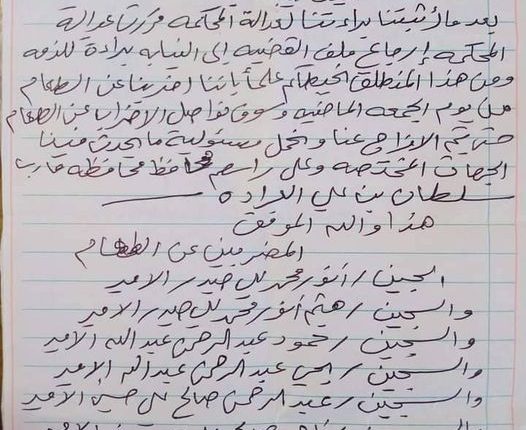 بعد ما أثبتنا براءتنا لعدالة المحكمة قررت عدالة
المحكمة إرجاع ملف القضيه إلى النيابه براءة للذمه
ومن هذا المنطلق نحيطكم علماً بأننا اضربنا عن الطعام
من يوم الجمعه الماضيه وسوف نواصل الاضراب عن الطعام
حتى تم الافراج عنا ونحمل مسئولية ما يحدث فينا
الجهات المختصه وعلى راسهم محافظ محافظه مارب
سلطان بن علي العرادة
هذا والله الموفق
المضربين عن الطعام
السجين / أنور محمد علي حيدر الامير
والسجين / هيثم أنور محمد علي حيدر الامير
والسجين / حمود عبدالرحمن عبدالله الامير
والسجين / يحي عبدالرحمن عبدالله الامير
والسجين / عبدالرحمن صالح علي حسين الامير